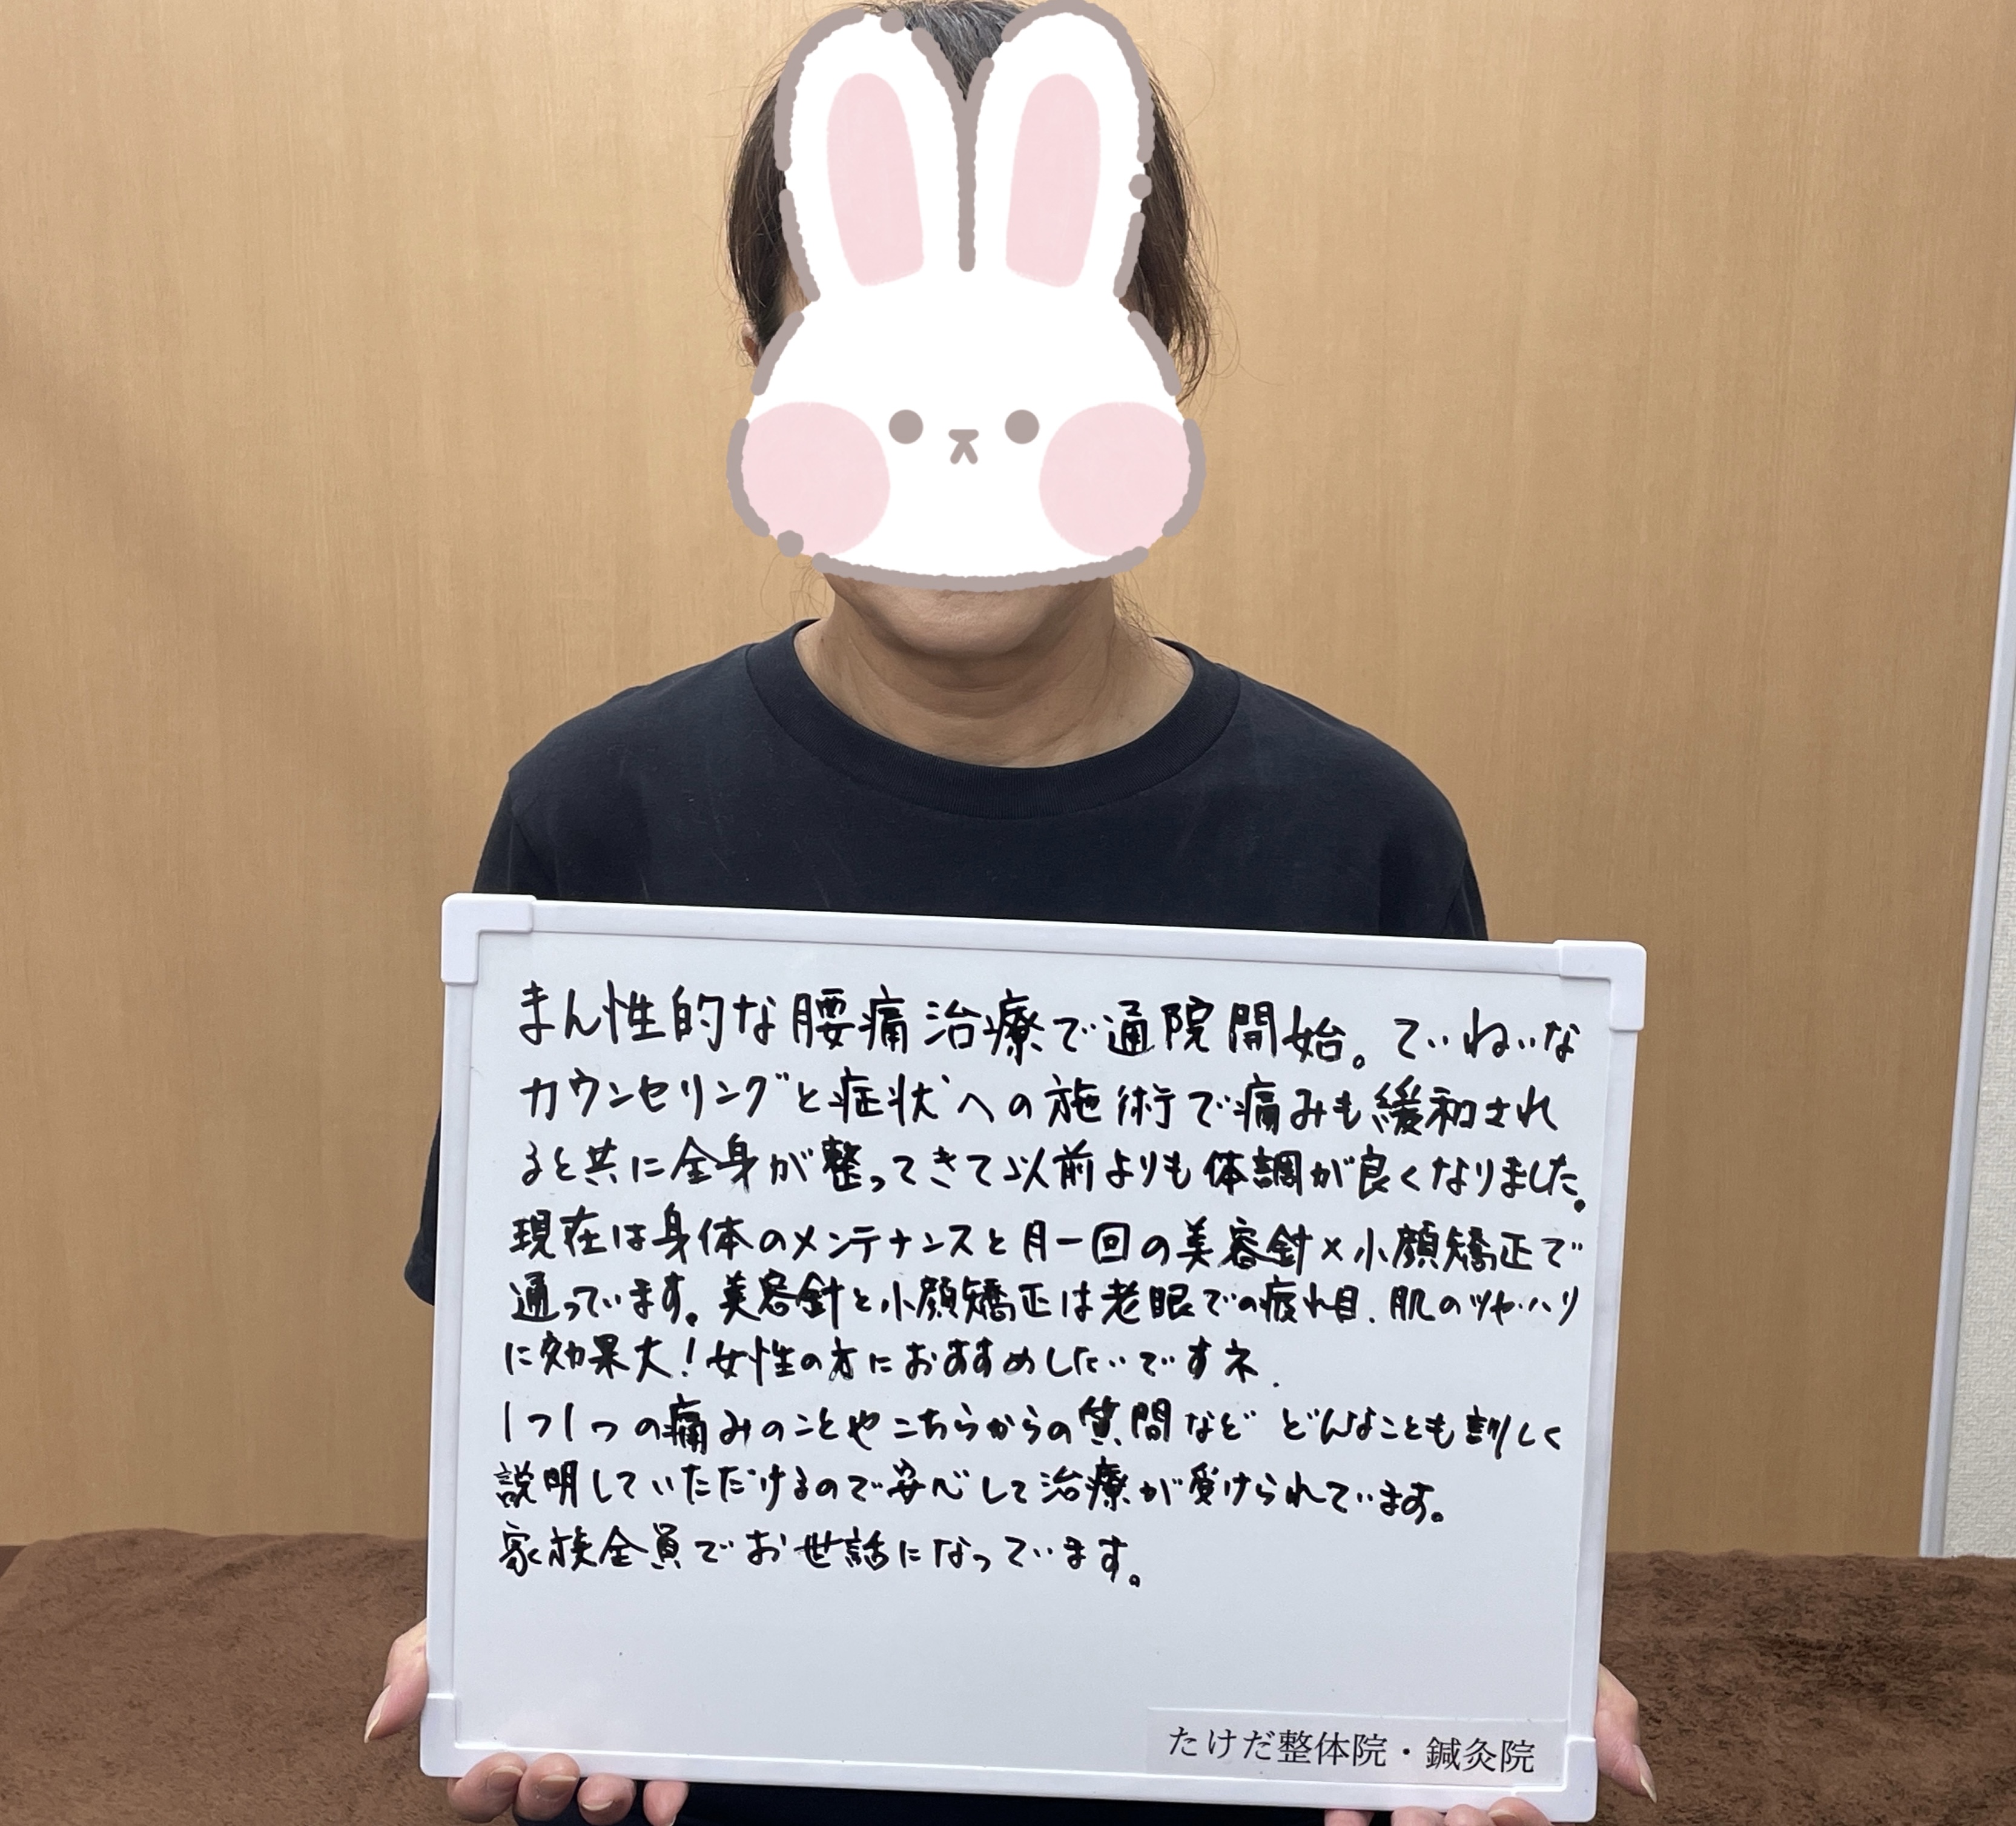 まん性的な腰痛治療で通院開始。ていねいな
カウンセリングと症状への施術で痛みも緩和され
ると共に全身が整ってきて以前よりも体調が良くなりました。
現在は身体のメンテナンスと月一回の美容針×小顔矯正で
通っています。美容針と小顔矯正は老眼での疲れ目、肌のツヤ・ハリ
に効果大!女性の方におすすめしたいですネ.
1つ1つの痛みのことやこちらからの質問など どんなことも詳しく
説明していただけるので安心して治療が受けられています。
家族全員でお世話になっています。
たけだ整体院・鍼灸院